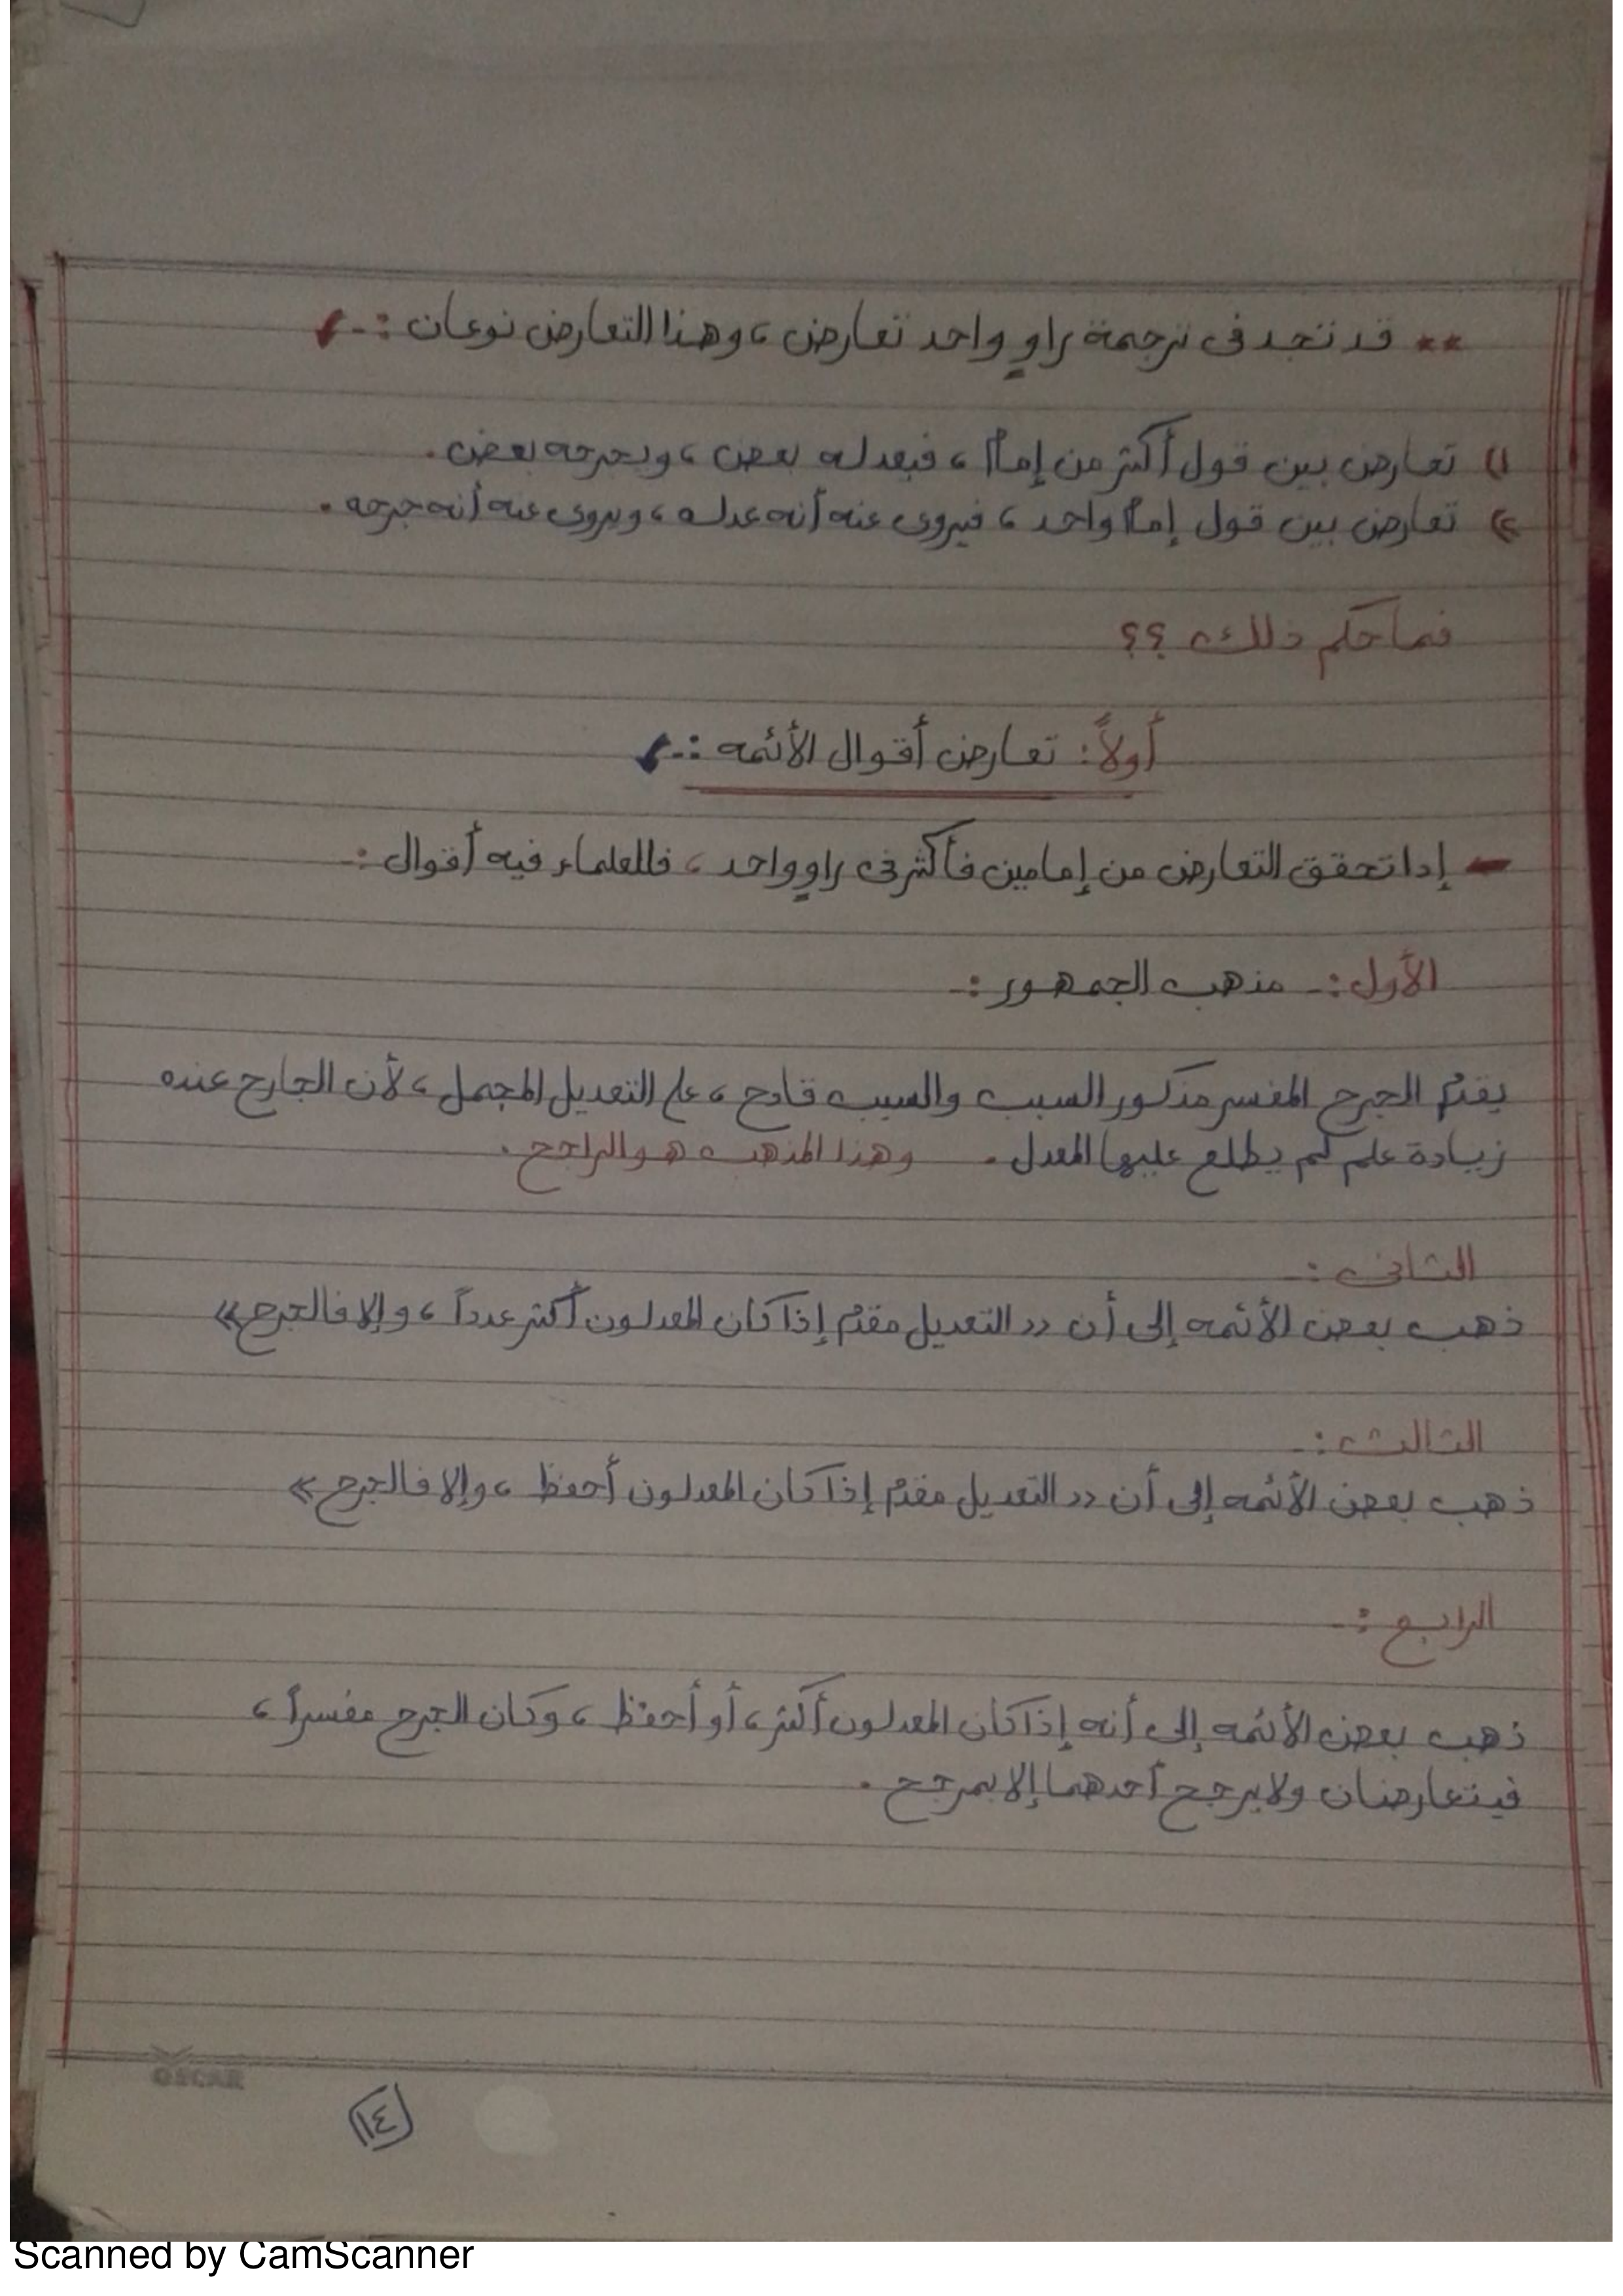 ** قد تجد فى ترجمة راوٍ واحد تعارض ، وهذا التعارض نوعان :-
١) تعارض بين قول أكثر من إمام ، فيعدله بعض ، ويجرحه بعض .
٢) تعارض بين قول إمام واحد ، فيروى عنه أنه عدله ، ويروى عنه أنه جرحه .
فما حكم ذلك ؟؟
أولاً : تعارض أقوال الأئمه :-
- إذا تحقق التعارض من إمامين فأكثر فى راوٍ واحد ، فللعلماء فيه أقوال :-
الأول :- مذهب الجمهور :-
يقدم الجرح المفسر مذكور السبب والسبب قادح ، على التعديل المجمل ، لأن الجارح عنده
زيادة علم لم يطلع عليها المعدل . وهذا المذهب هو الراجح .
الثانى :-
ذهب بعض الأئمه إلى أن « التعديل مقدم إذا كان المعدلون أكثر عدداً ، وإلا فالجرح »
الثالث :-
ذهب بعض الأئمه إلى أن « التعديل مقدم إذا كان المعدلون أحفظ ، وإلا فالجرح »
الرابع :-
ذهب بعض الأئمه إلى أنه إذا كان المعدلون أكثر ، أو أحفظ ، وكان الجرح مفسراً ،
فيتعارضان ولا يرجح أحدهما إلا بمرجح .
OSCAR
١٤
Scanned by CamScanner